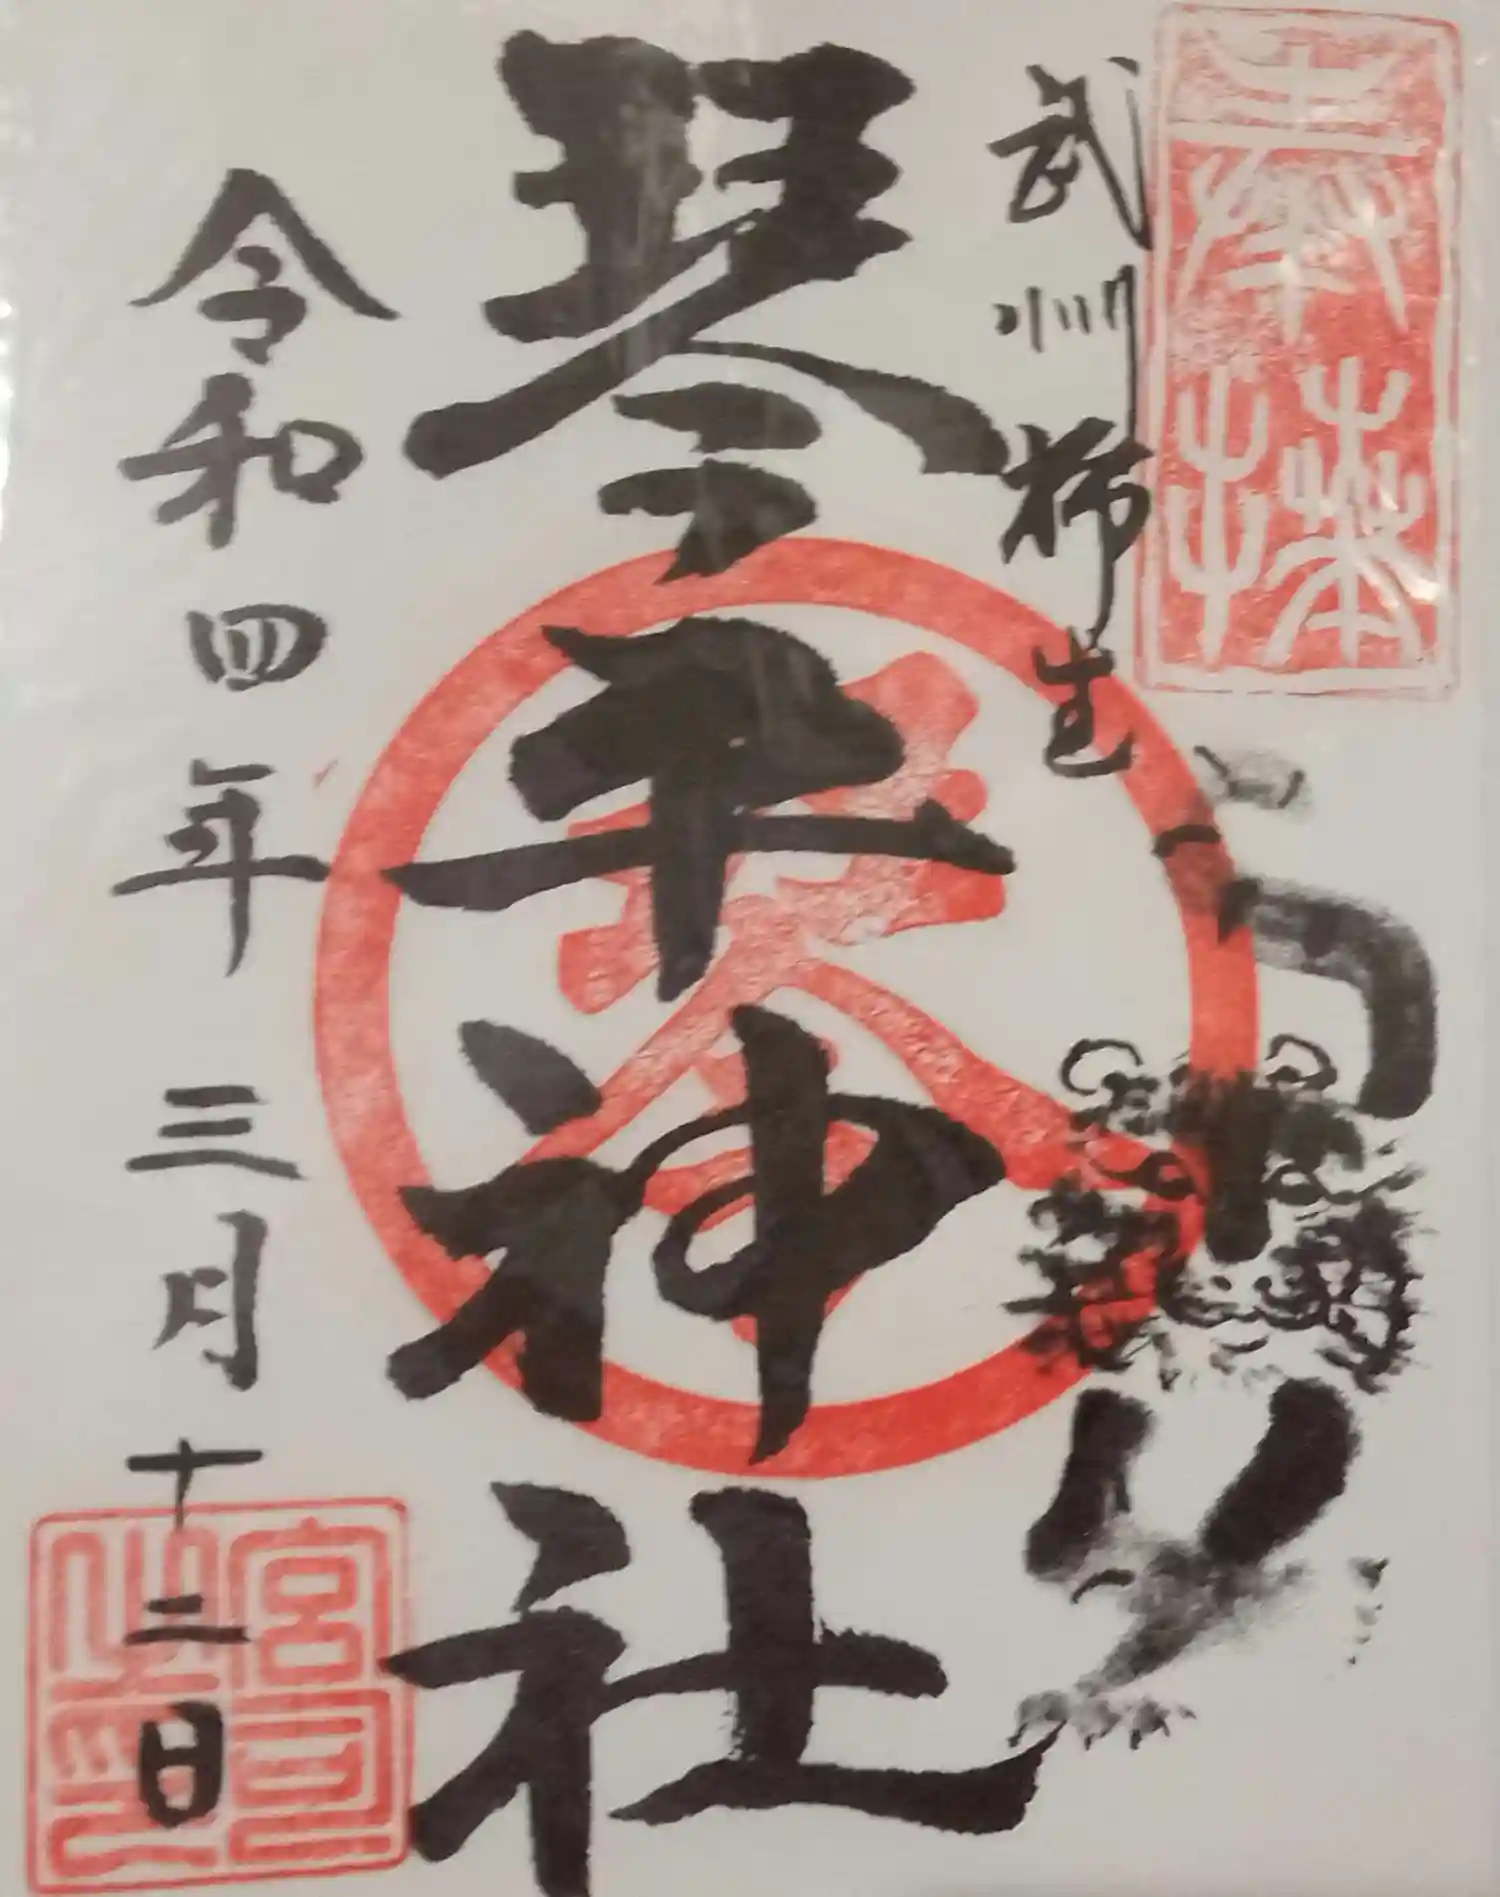 奉拝
武州柿生
琴平神社
令和四年三月十二日
宮司之印